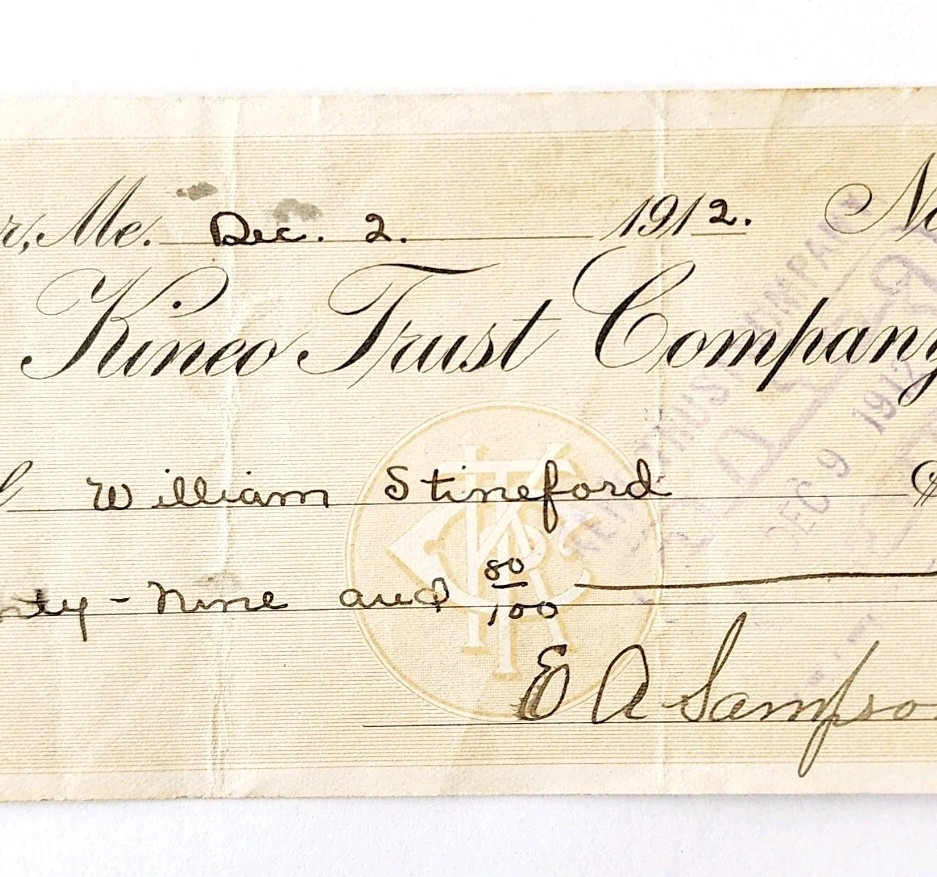 Me. Dec. 2. 1912. No
Kineo Trust Company
William Stineford $
-Nine and 80/100
E A Sampso
TRUST COMPANY
DEC 9 1912